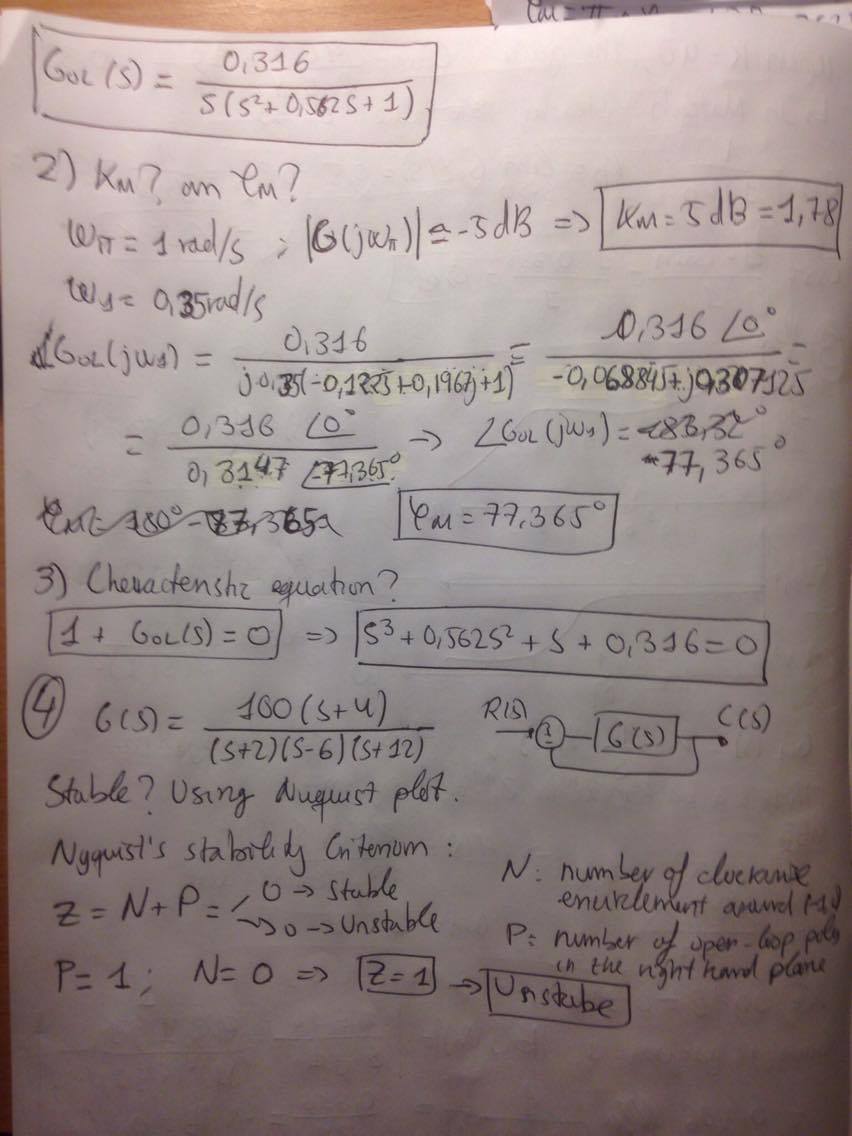 GOL(S) = 0,316 / S(S²+0,562S+1)
2) KM? an φM?
ωπ = 1 rad/s ; |G(jωπ)| ≈ -5 dB => KM = 5 dB = 1,78
ω1 = 0,35 rad/s
∠GOL(jω1) = 0,316 / j0,35(-0,1225+0,1967j+1) = 0,316 ∠0° / -0,068845+j0,307125 =
= 0,316 ∠0° / 0,3147 ∠-77,365° → ∠GOL(jω1) =
-77,365°
φM = 77,365°
3) Cheractenstiz equation?
1 + GOL(S) = 0 => S³ + 0,562S² + S + 0,316 = 0
④ G(S) = 100(S+4) / (S+2)(S-6)(S+12) R(S) G(S) C(S)
Stable? Using Nuquist plot.
Nyquist's stability Criterion :
N: number of clockwise
encirclement around (-1,0)
Z = N + P = 0 → Stable
> 0 → Unstable
P= number of open-loop poles
in the right hand plane
P = 1 ; N = 0 => Z = 1 → Unstabe